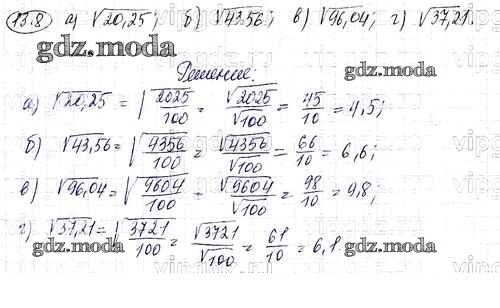 13.8 а) √20,25; б) √43,56; в) √96,04; г) √37,21.
gdz.moda gdz.moda
Решение:
а) √20,25 = √2025/100 = √2025/√100 = 45/10 = 4,5;
б) √43,56 = √4356/100 = √4356/√100 = 66/10 = 6,6;
в) √96,04 = √9604/100 = √9604/√100 = 98/10 = 9,8;
г) √37,21 = √3721/100 = √3721/√100 = 61/10 = 6,1.
gdz.moda gdz.moda